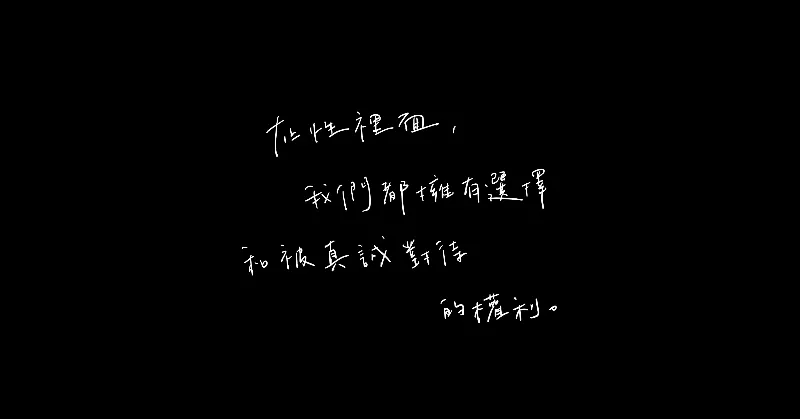 在性裡面，
我們都擁有選擇
和被真誠對待
的權利。